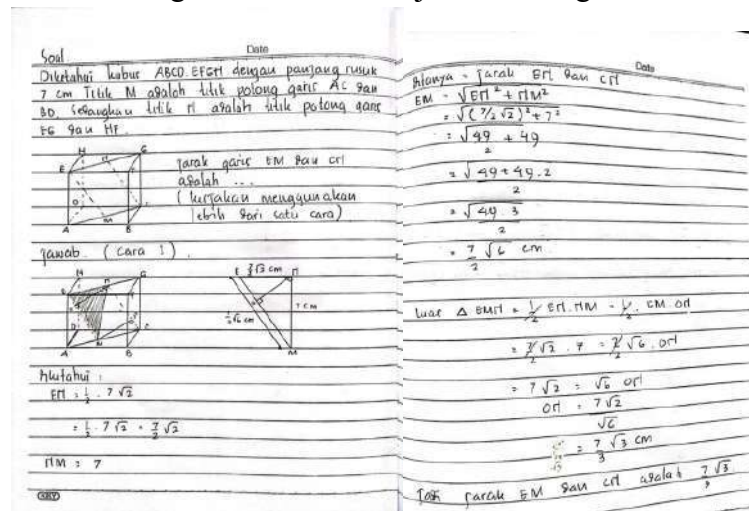 Soal
Date
Diketahui kubus ABCD.EFGH dengan panjang rusuk
7 cm Titik M adalah titik potong garis AC dan
BD, sedangkan titik N adalah titik potong garis
EG dan HF.
Jarak garis EM dan CN
adalah ...
(kerjakan menggunakan
lebih dari satu cara)
H
G
E
D
A
M
B
Jawab. (Cara 1)
H
G
D
C
A
B
E
7/2 √2 cm
N
7 cm
7/2 √6 cm
M
Diketahui :
EN = 1/2 . 7 √2
= 1/2 . 7 √2 = 7/2 √2
NM = 7
Date
Ditanya = Jarak EM dan CN
EM = √EN² + NM²
= √(7/2 √2)² + 7²
= √49/2 + 49
= √49 + 49.2/2
= √49 . 3/2
= 7/2 √6 cm
Luas Δ EMN = 1/2 EN . NM = 1/2 . EM . ON
= 7/2 √2 . 7 = 7/2 √6 . ON
= 7 √2 = √6 ON
ON = 7 √2/√6
= 7/3 √3 cm
Jadi jarak EM dan CN adalah 7 √3/3